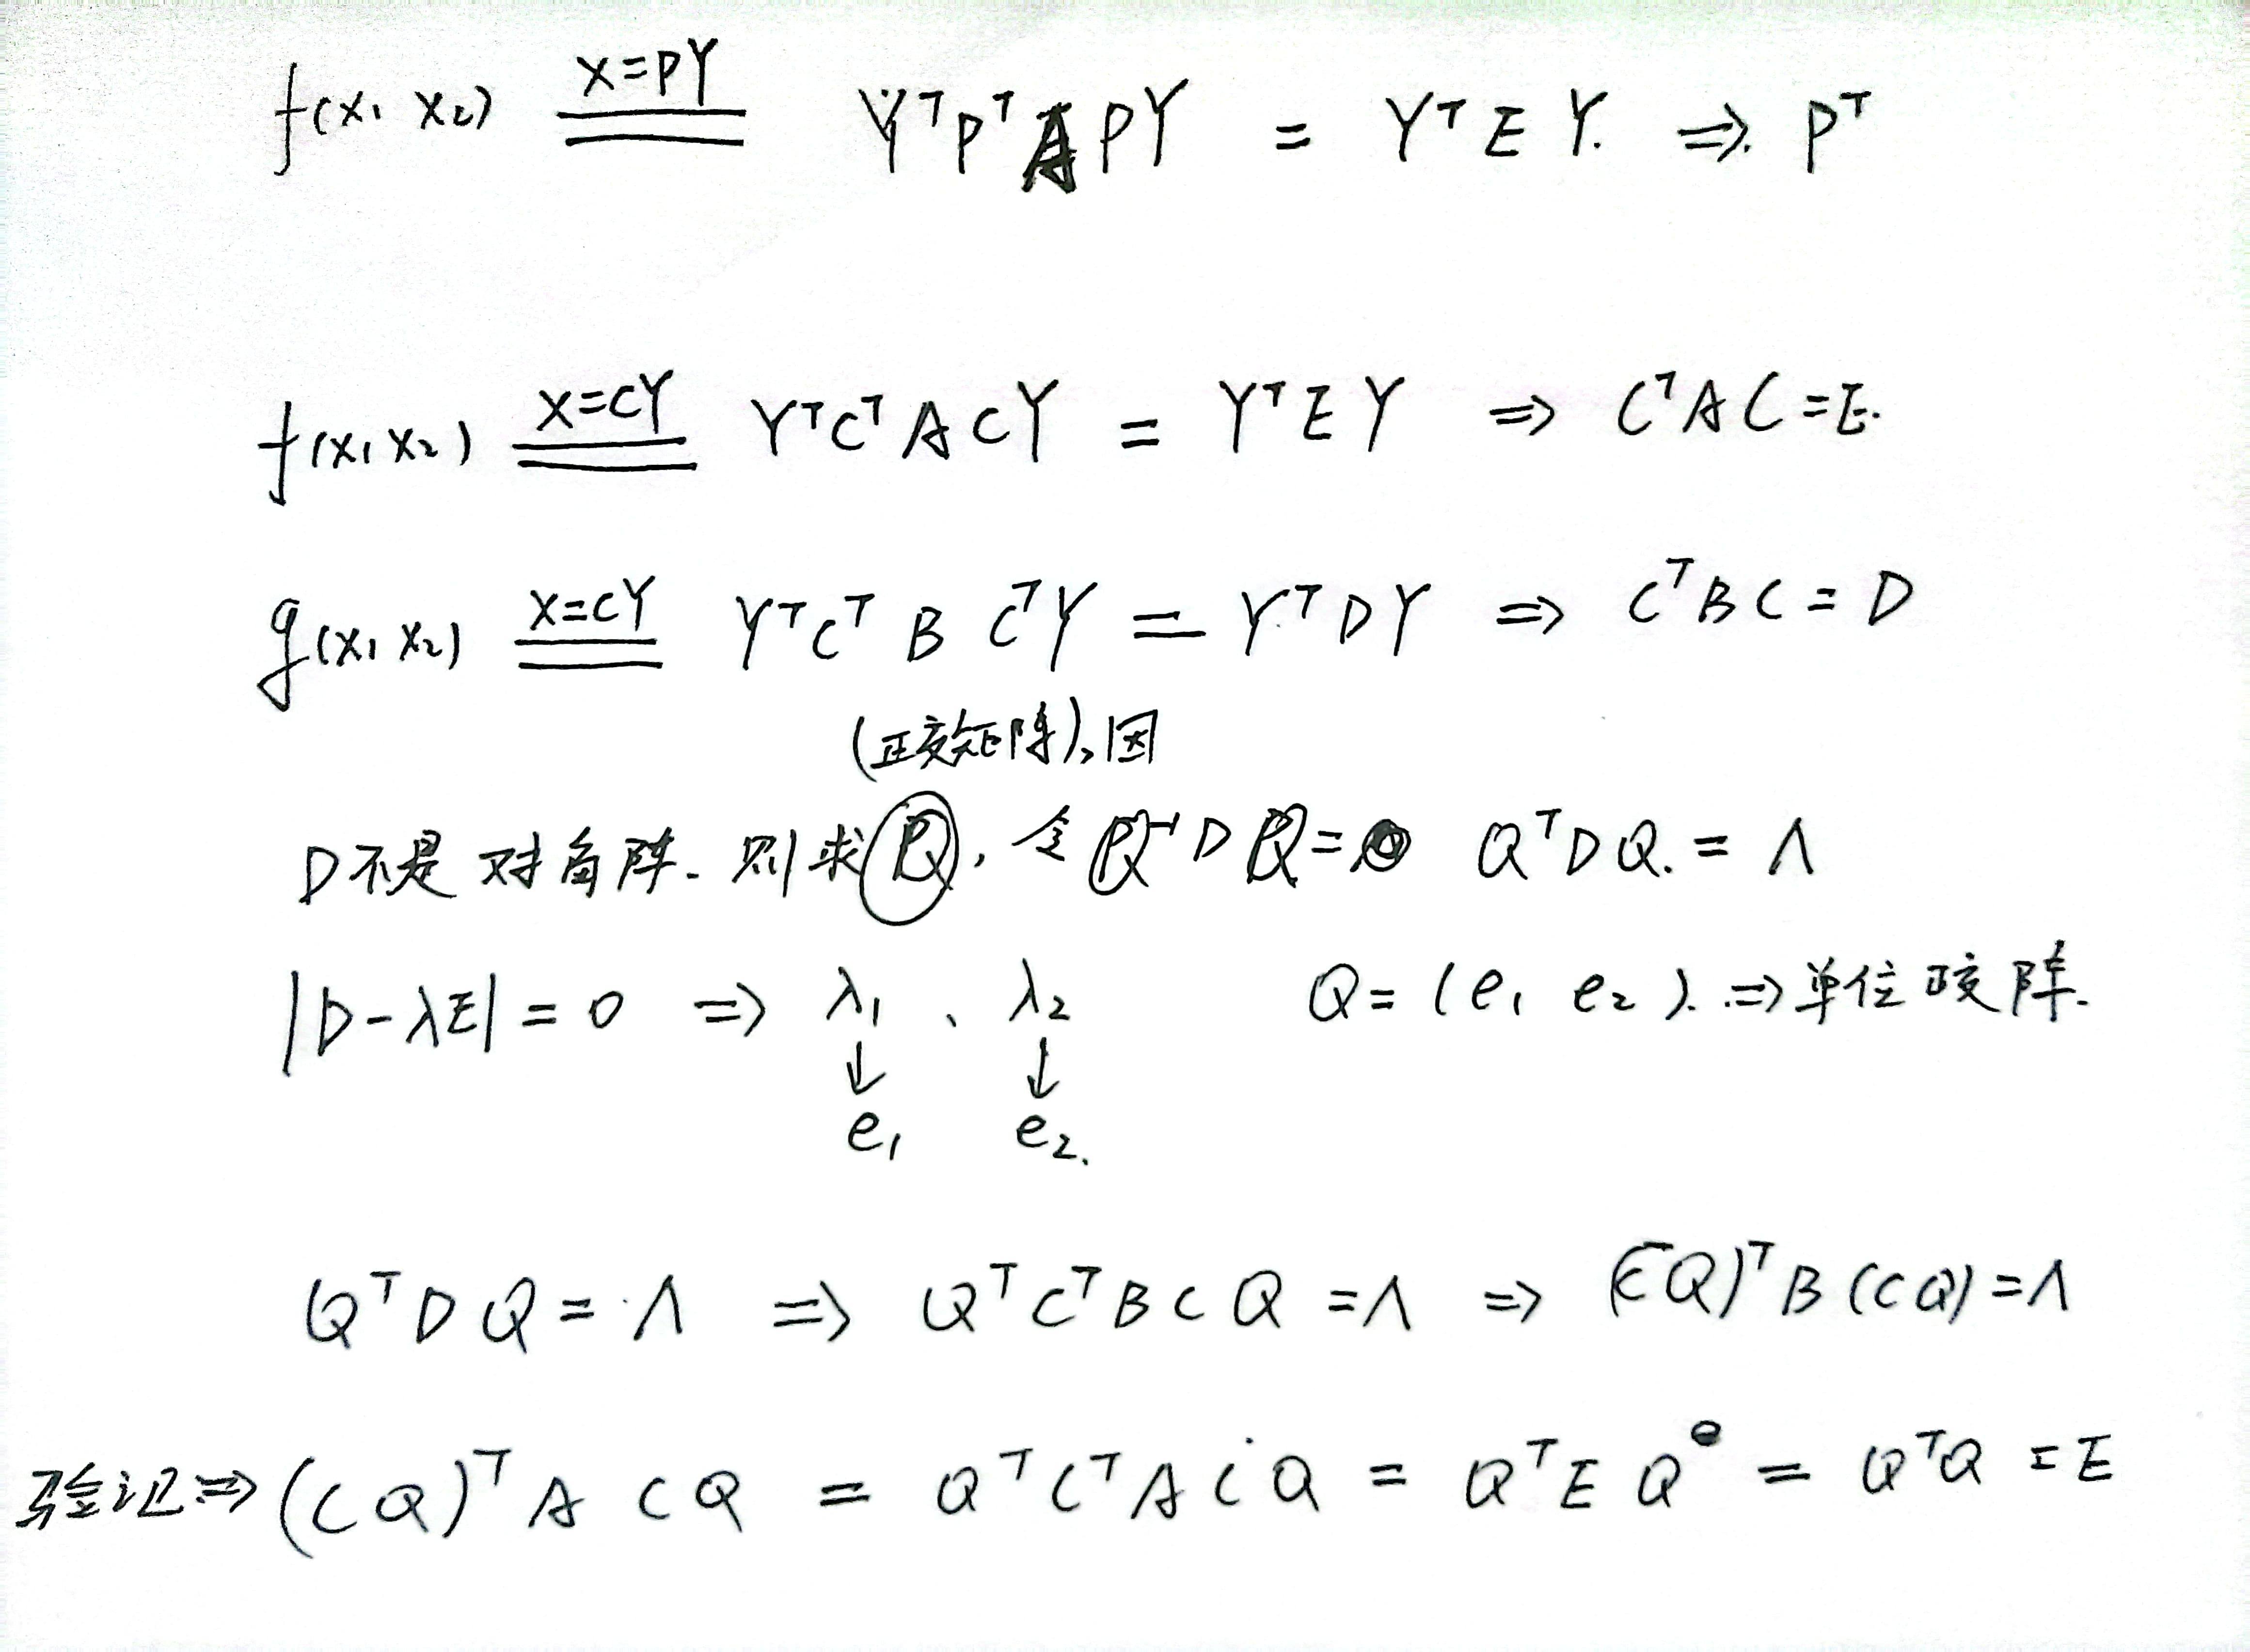 f(x₁ x₂) X=PY YᵀPᵀAPY = YᵀEY. ⇒ Pᵀ
f(x₁x₂) X=CY YᵀCᵀACY = YᵀEY ⇒ CᵀAC=E.
g(x₁ x₂) X=CY YᵀCᵀBCᵀY = YᵀDY ⇒ CᵀBC=D
(正交矩阵),因
D不是对角阵. 则求Q, 令Q⁻¹DQ= QᵀDQ.=Λ
|D-λE|=0 ⇒ λ₁、λ₂ Q=(e₁ e₂).⇒单位正交阵.
↓ ↓
e₁ e₂.
QᵀDQ=Λ ⇒ QᵀCᵀBCQ=Λ ⇒ (CQ)ᵀB(CQ)=Λ
验证⇒(CQ)ᵀACQ = QᵀCᵀACQ = QᵀEQ = QᵀQ=E